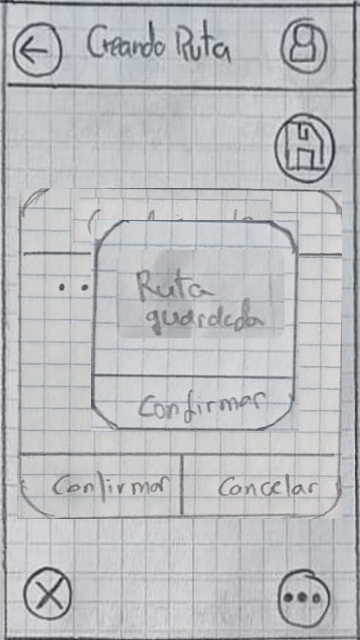 Creando Ruta
Ruta
guardada
Confirmar
Confirmar
Cancelar